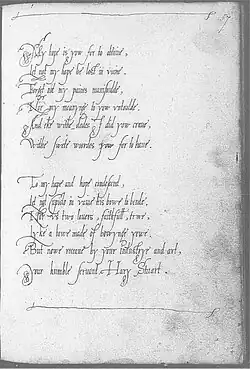 57
My hope is yow for to obtaine,
Let not my hope be lost in vaine.
Forget not my paines manifoulde,
Nor my meanynge to yow untoulde.
And eke withe dedes I did yow craue,
Withe swete woordes yow for to haue.
To my hape and hope condescend,
Let not Cupido in vaine his bowe to bende.
Nor us two louers, faithfull, trwe,
Lyke a bowe made of bowynge yewe.
But nowe receaue by your industrye and art,
Your humble seruant Hary Stuart.